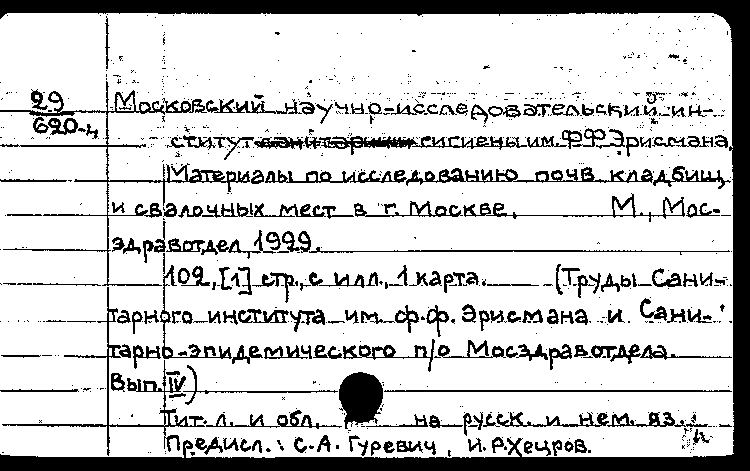 29
620-4
Московский научно-исследовательский ин-
ститут санитарии гигиены им. Ф.Ф. Эрисмана.
Материалы по исследованию почв кладбищ
и свалочных мест в г. Москве. М., Мос-
здравотдел, 1929.
102, [1] стр., с илл., 1 карта. (Труды Сани-
тарного института им. Ф.Ф. Эрисмана и Сани-
тарно-эпидемического п/о Мосздравотдела.
Вып. IV).
Тит. л. и обл. на русск. и нем. яз.
Предисл.: С.А. Гуревич, И.Р. Хецров.